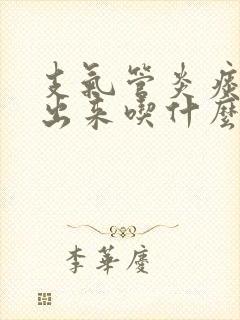 支氣管炎痰
出来喫什麼
李華慶